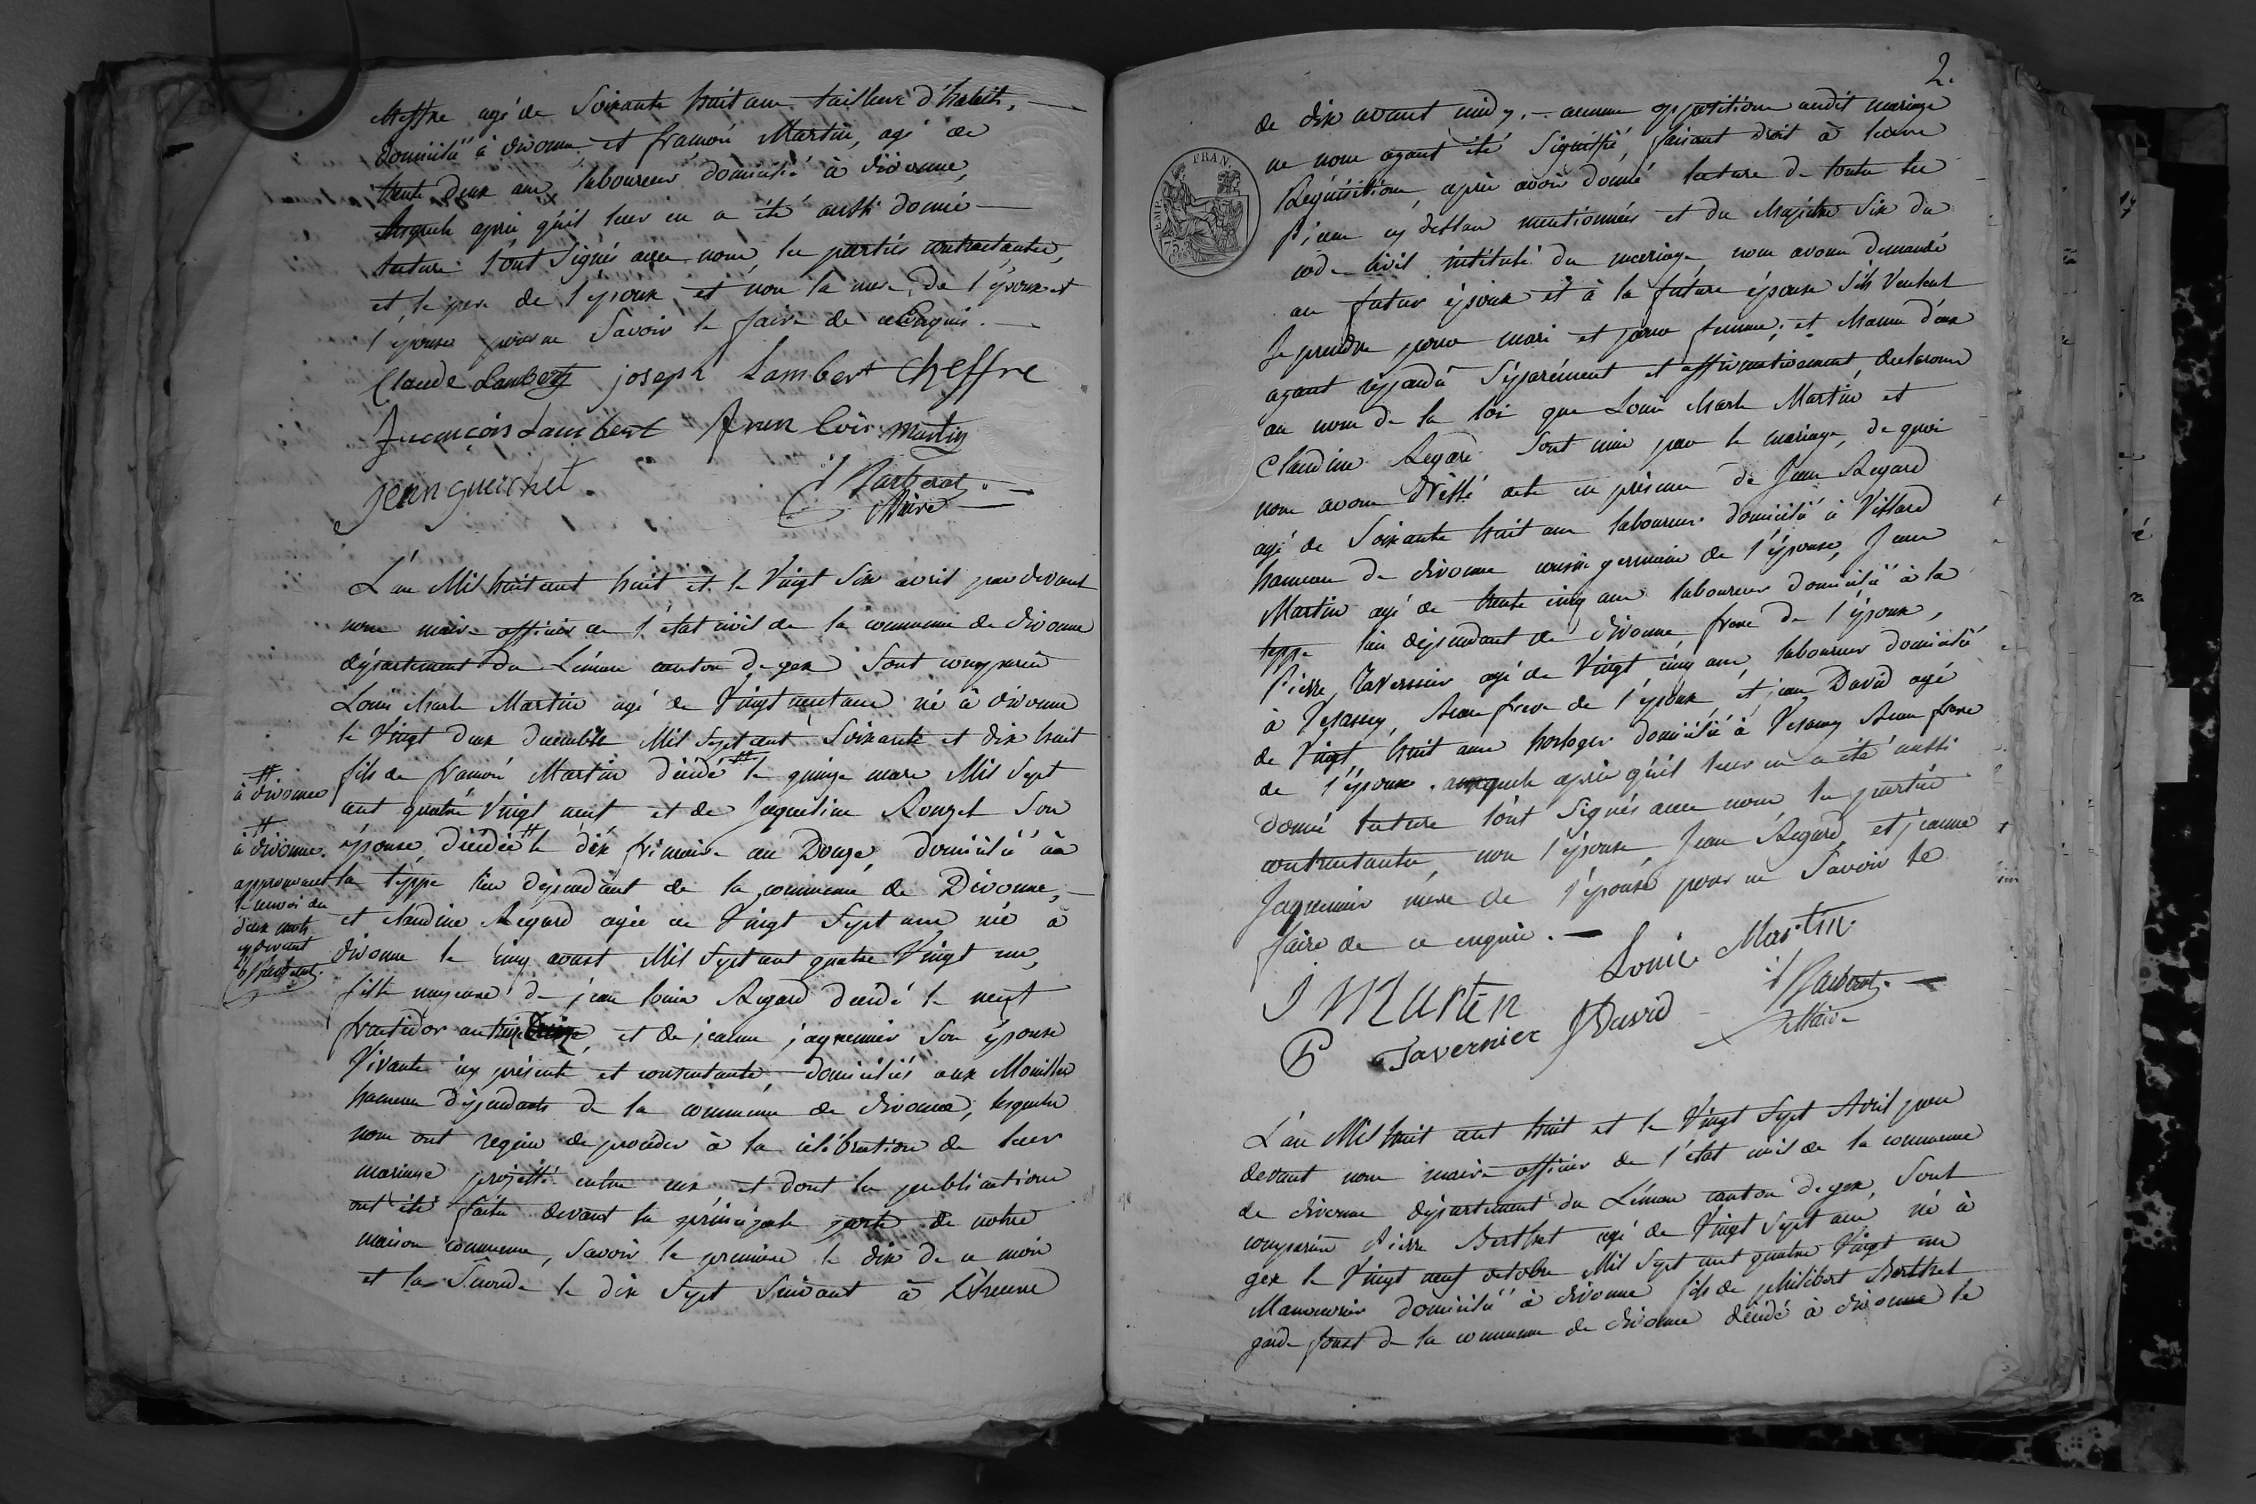 Cheffre agé de Soixante huit ans tailleur d'habits,
domicilié à divonne et françois Martin, agé de
trente deux ans laboureur domicilié à divonne,
lesquels après qu'il leur en a été aussi donné
lecture sont signés avec nous, les parties contractantes,
et le pere de l'époux, et non la mere de l'époux et
l'épouse pour ne Savoir le faire de ce Enquis.
Claude Lambert joseph Lambert Cheffre
françois Lambert fran Cois martin
jean guichet.
Maire
L'an Mil huit cent huit et le Vingt Six avril par devant
nous maire officier de l'état civil de la commune de divonne
département du Léman canton de gex, Sont comparus
Louis Marle Martin agé de Vingt neuf ans né à divonne
le Vingt deux decembre Mil Sept cent Soixante et dix huit
fils de françois Martin décédé # le quinze mars Mil Sept
# à divonne
cent quatre Vingt neuf et de Jaqueline Rouzet Son
épouse, décédée # le dix frimaire an Douze, domicilié à
# à divonne.
la teppe lieu dependant de la commune de Divonne,
approuvant le renvoi des deux mots cy devant
et claudine Regard agée de Vingt Sept ans née à
divonne le cinq aoust Mil Sept cent quatre Vingt un,
fille majeure de jean louis Regard décédé le neuf
fructidor an et de jeanne jaquemier Son épouse
Vivante icy présente et consentante domiciliés aux Mouilles
hameau dependants de la commune de divonne, lesquels
nous ont requis de proceder à la célébration de leur
mariage projetté entre eux et dont les publications
ont été faites devant la principale porte de notre
maison commune, Savoir la premiere le dix de ce mois
et la Seconde le dix Sept Suivant à L'heure
2.
FRAN.
EMP.
de dix avant midy. aucune opposition audit mariage
ne nous ayant été Signifié, faisant droit à leur
Réquisition, après avoir donné lecture de toutes les
Pieces cy dessus mentionnées et du chapitre Six du
code civil intitulé du mariage nous avons demandé
au futur époux et à la future épouse S'ils Veulent
Se prendre pour mari et pour femme; et chacun d'eux
ayant répondu Séparément et affirmativement declarons
au nom de la loi que Louis Marle Martin et
Claudine Regard Sont unis par le mariage, de quoi
nous avons dressé acte en présence de Jean Regard
agé de Soixante huit ans laboureur domicilié à Villard
hameau de divonne cousin germain de l'épouse, Jean
Martin agé de trente cinq ans laboureur domicilié à la
teppe lieu dependant de divonne frere de l'époux,
Pierre Tavernier agé de Vingt cinq ans, laboureur domicilié
à Vesancy, beau frere de l'époux et jean David agé
de Vingt huit ans horloger domicilié à Vesancy beau frere
de l'époux. auxquels après qu'il leur en a été aussi
donné lecture sont Signés avec nous les parties
contractantes non l'épouse Jean Regard et jeanne
Jaquemier mere de l'épouse pour ne Savoir le
faire de ce enquis.
Louis Martin
J Marten
P Tavernier J David
Maire
L'an Mil huit cent huit et le Vingt Sept Avril par
devant nous maire officier de l'état civil de la commune
de divonne département du Léman canton de gex, Sont
comparus Pierre Berthet agé de Vingt Sept ans né à
gex le Vingt neuf octobre Mil Sept cent quatre Vingt un
Manouvrier domicilié à divonne fils de philibert Berthet
garde forest de la commune de divonne décédé à divonne le